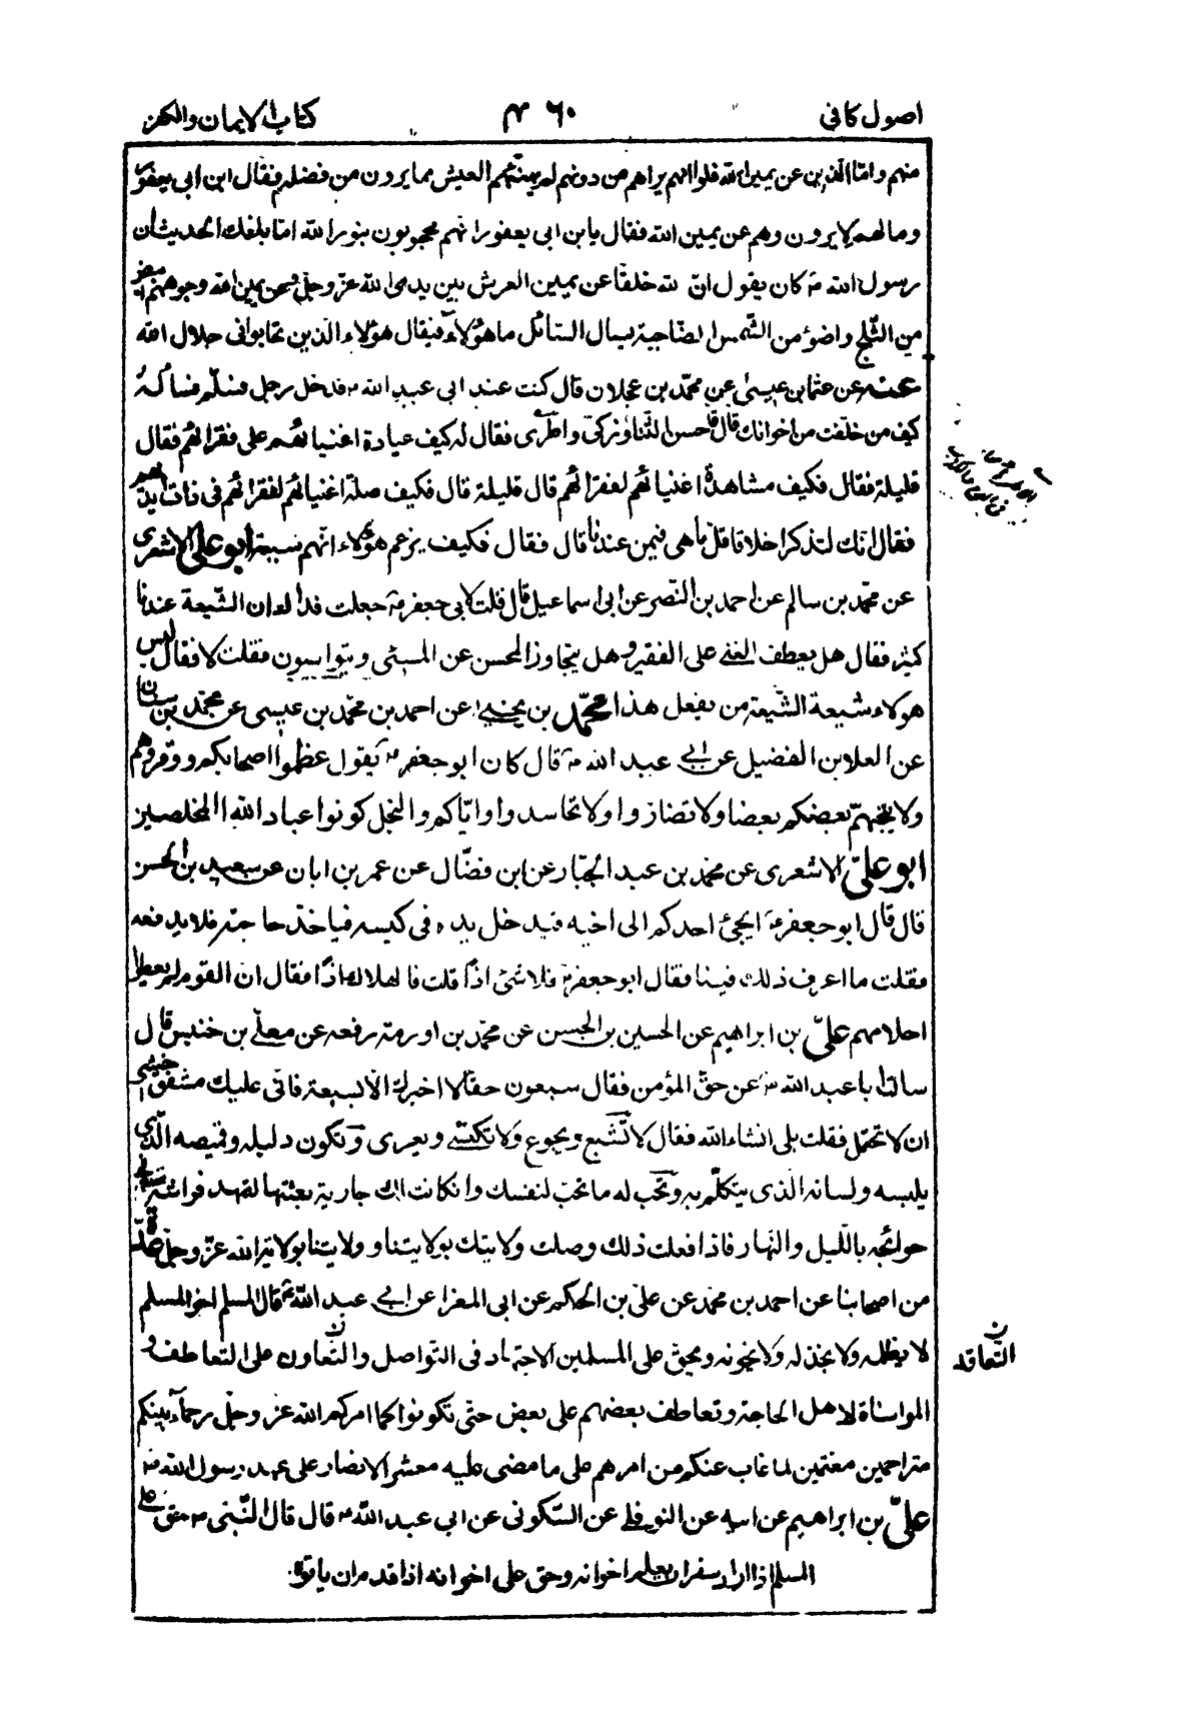 اصول كافى ۴۶۰ كتاب الايمان والكفر
منهم وامّا الّذين عن يمين اللّه فلو انّهم يراهم من دونهم لم يهنّئهم العيش ممّا يرون من فضلهم فقال ابن ابى يعفور
وما لهم لا يرون وهم عن يمين اللّه فقال يا بن ابى يعفور انّهم محجوبون بنور اللّه امّا بلغك الحديث ان
رسول اللّه ص كان يقول انّ للّه خلقا عن يمين العرش بين يدى اللّه عزّ وجلّ وعن يمين اللّه وجوههم ابيض
من الثّلج واضوؤ من الشّمس الضّاحية يسال السّائل ما هؤلآء فيقال هؤلاء الّذين تحابوا فى جلال اللّه
عنه عن عثمان بن عيسى عن محمّد بن عجلان قال كنت عند ابى عبد اللّه ع فدخل رجل فسلّم فساله
كيف من خلّفت من اخوانك قال فاحسن الثّناء وزكّى واطرى فقال له كيف عيادة اغنيائهم على فقرائهم فقال
قليلة فقال فكيف مشاهدة اغنيائهم لفقرائهم قال قليلة قال فكيف صلة اغنيائهم لفقرائهم فى ذات ايديهم
فقال انّك لتذكر اخلاقا قلّ ما هى فيمن عندنا قال فقال فكيف يزعم هؤلاء انّهم شيعة ابو على الاشعرى
عن محمّد بن سالم عن احمد بن النّضر عن ابى اسماعيل قال قلت لابى جعفر ع جعلت فداك ان الشّيعة عندنا
كثير فقال هل يعطف الغنى على الفقير وهل يتجاوز المحسن عن المسئى ويتواسون فقلت لا فقال ليس
هولاء شيعة الشّيعة من يفعل هذا محمّد بن يحيى عن احمد بن محمّد بن عيسى عن محمّد بن سنان
عن العلا بن الفضيل عن ابى عبد اللّه ع قال كان ابو جعفر ع يقول عظّموا اصحابكم ووقروهم
ولا يتجهّم بعضكم بعضا ولا تضارّوا ولا تحاسدوا وايّاكم والبخل كونوا عباد اللّه المخلصين
ابو علىّ الاشعرى عن محمّد بن عبد الجبّار عن ابن فضّال عن عمر بن ابان عن سعيد بن الحسن
قال قال ابو جعفر ع ايجئ احدكم الى اخيه فيدخل يده فى كيسه فياخذ حاجته فلا يدفعه
فقلت ما اعرف ذلك فينا فقال ابو جعفر ع فلا شئ اذًا قلت فالهلاك اذًا فقال ان القوم لم يعطوا
احلامهم علىّ بن ابراهيم عن الحسين بن الحسن عن محمّد بن اورمة رفعه عن معلّى بن خنيس قال
سالت ابا عبد اللّه ع عن حقّ المؤمن فقال سبعون حقّا لا اخبرك الّا بسبعة فانّى عليك مشفق اخشى
ان لا تحتمل فقلت بلى انشاء اللّه فقال لا تشبع ويجوع ولا تكتسى ويعرى وتكون دليله وقميصه الّذى
يلبسه ولسانه الّذى يتكلّم به وتحبّ له ما تحبّ لنفسك وان كانت لك جارية بعثتها لتمهد فراشه وتسعى فى
حوائجه باللّيل والنّهار فاذا فعلت ذلك وصلت ولايتك بولايتنا وولايتنا بولاية اللّه عزّ وجلّ عدّة
من اصحابنا عن احمد بن محمّد عن علىّ بن الحكم عن ابى المغرا عن ابى عبد اللّه ع قال المسلم اخو المسلم
لا يظلمه ولا يخذله ولا يخونه ويحقّ على المسلمين الاجتهاد فى التّواصل والتّعاون على التّعاطف و
المواساة لاهل الحاجة وتعاطف بعضهم على بعض حتّى تكونوا كما امركم اللّه عزّ وجلّ رحمآء بينكم
متراحمين مغتمّين لما غاب عنكم من امرهم على ما مضى عليه معشر الانصار على عهد رسول اللّه ص
علىّ بن ابراهيم عن ابيه عن النّوفلى عن السّكونى عن ابى عبد اللّه ع قال قال النّبى ص حقّ على
المسلم اذا اراد سفرا ان يعلم اخوانه وحق على اخوانه اذا قدم ان ياتوه
التّعاقد ن